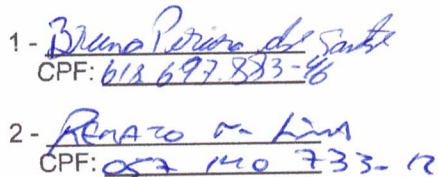 1 - Bruno Pereira dos Santos
CPF: 618 697.883-46
2 - RENATO M. LIMA
CPF: 057 140 733-12